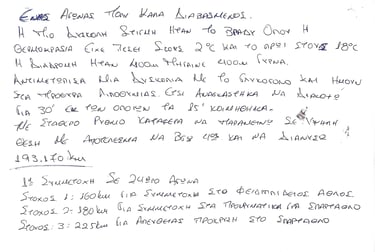 ΕΝΑΣ ΑΓΩΝΑΣ ΠΟΛΥ ΚΑΛΑ ΔΙΑΒΑΣΜΕΝΟΣ.
Η ΠΙΟ ΔΥΣΚΟΛΗ ΣΤΙΓΜΗ ΗΤΑΝ ΤΟ ΒΡΑΔΥ ΟΠΟΥ Η
ΘΕΡΜΟΚΡΑΣΙΑ ΕΙΧΕ ΠΕΣΕΙ ΣΤΟΥΣ 2°C ΚΑΙ ΤΟ ΠΡΩΙ ΣΤΟΥΣ 18°C
Η ΔΙΑΔΡΟΜΗ ΗΤΑΝ 400m ΠΗΓΑΙΝΕ 400m ΓΥΡΝΑ.
ΑΝΤΙΜΕΤΩΠΙΣΑ ΜΙΑ ΔΥΣΚΟΛΙΑ ΜΕ ΤΟ ΓΛΥΚΟΓΟΝΟ ΚΑΙ ΗΜΟΥΝ
ΣΤΑ ΠΡΟΘΥΡΑ ΛΙΠΟΘΥΜΙΑΣ. ΕΤΣΙ ΑΝΑΓΚΑΣΤΗΚΑ ΝΑ ΔΙΑΚΟΨΩ
ΓΙΑ 30' ΕΚ ΤΩΝ ΟΠΟΙΩΝ ΤΑ 15' ΚΟΙΜΗΘΗΚΑ.
ΜΕ ΣΤΑΘΕΡΟ ΡΥΘΜΟ ΚΑΤΑΦΕΡΑ ΝΑ ΠΑΡΑΜΕΙΝΩ ΣΕ ΥΨΗΛΗ
ΘΕΣΗ ΜΕ ΑΠΟΤΕΛΕΣΜΑ ΝΑ ΒΓΩ 4ΟΣ ΚΑΙ ΝΑ ΔΙΑΝΥΣΩ
193,170 km
1Η ΣΥΜΜΕΤΟΧΗ ΣΕ 24ΩΡΟ ΑΓΩΝΑ
ΣΤΟΧΟΣ 1: 160km ΓΙΑ ΣΥΜΜΕΤΟΧΗ ΣΤΟ ΦΕΙΔΙΠΠΙΔΕΙΟΣ ΑΘΛΟΣ.
ΣΤΟΧΟΣ 2: 180km ΓΙΑ ΣΥΜΜΕΤΟΧΗ ΣΤΑ ΠΡΟΚΡΙΜΑΤΙΚΑ ΓΙΑ ΣΠΑΡΤΑΘΛΟ
ΣΤΟΧΟΣ: 3: 225km ΓΙΑ ΑΠΕΥΘΕΙΑΣ ΠΡΟΚΡΙΣΗ ΣΤΟ ΣΠΑΡΤΑΘΛΟ